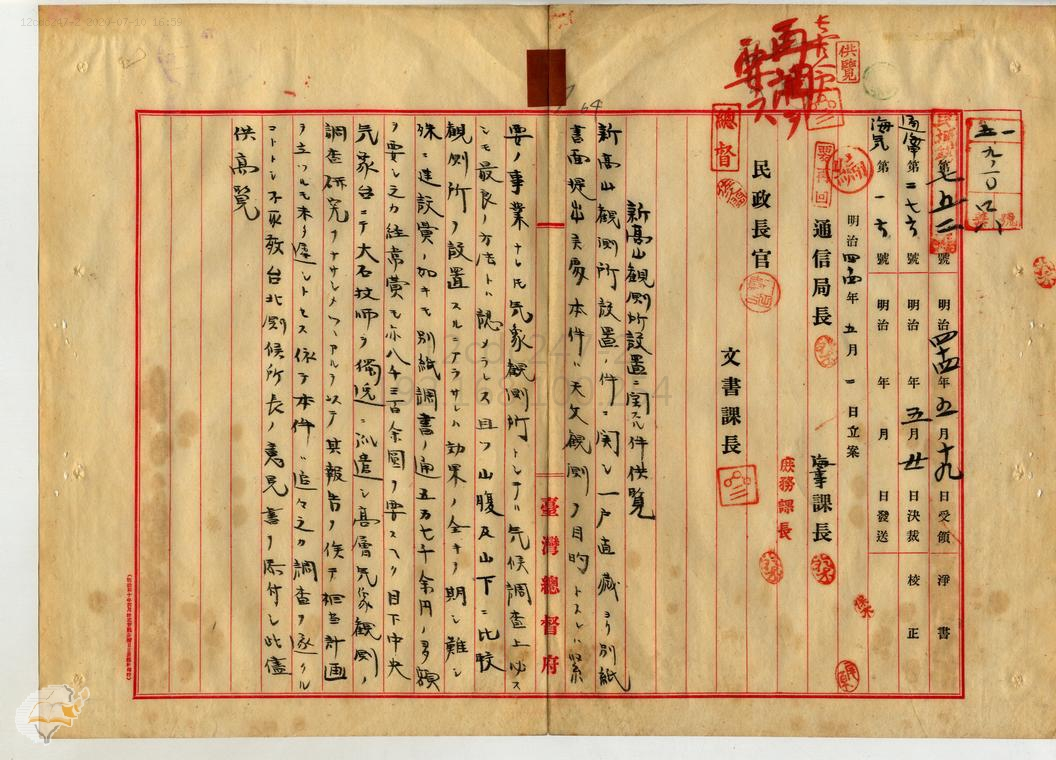 12cd3247-2 2020-07-10 16:59
供覽
一五九、二〇
民殖第七五二號 明治四十四年五月十九日受領 淨書
通庶第二七六號 明治 年五月廿日決裁 校正
海気第一六號 明治 年 月 日發送
明治四十四年五月一日立案
要再回
通信局長 海事課長
庶務課長
民政長官
總督
文書課長
新高山観測所設置ニ関スル件供覧
新高山観測所設置ノ件ニ関シ一戸直蔵ヨリ別紙
書面提出致候処本件ハ天文観測ノ目的トスレハ緊
要ノ事業ナレトモ気象観測所トシテハ気候調査上必ス
シモ最良ノ方法トハ認メラレス且ツ山腹及山下ニ比較
観測所ヲ設置スルニアラサレハ効果ノ全キヲ期シ難シ
殊ニ建設費ノ如キモ別紙調書ノ通五万七千余円ノ多額
ヲ要シ之カ経常費モ亦八千三百余圓ヲ要スヘク目下中央
気象台ニテ大石技師ヲ獨逸ニ派遣シ高層気象観測ノ
調査研究ヲナサシメツヽアルヲ以テ其報告ヲ俟テ相当計画
ヲ立ツルモ未タ遅シトセス依テ本件ハ追々之カ調査ヲ遂クル
コトトシ不取敢台北測候所長ノ意見書ヲ添付シ此儘
供高覧
臺灣總督府